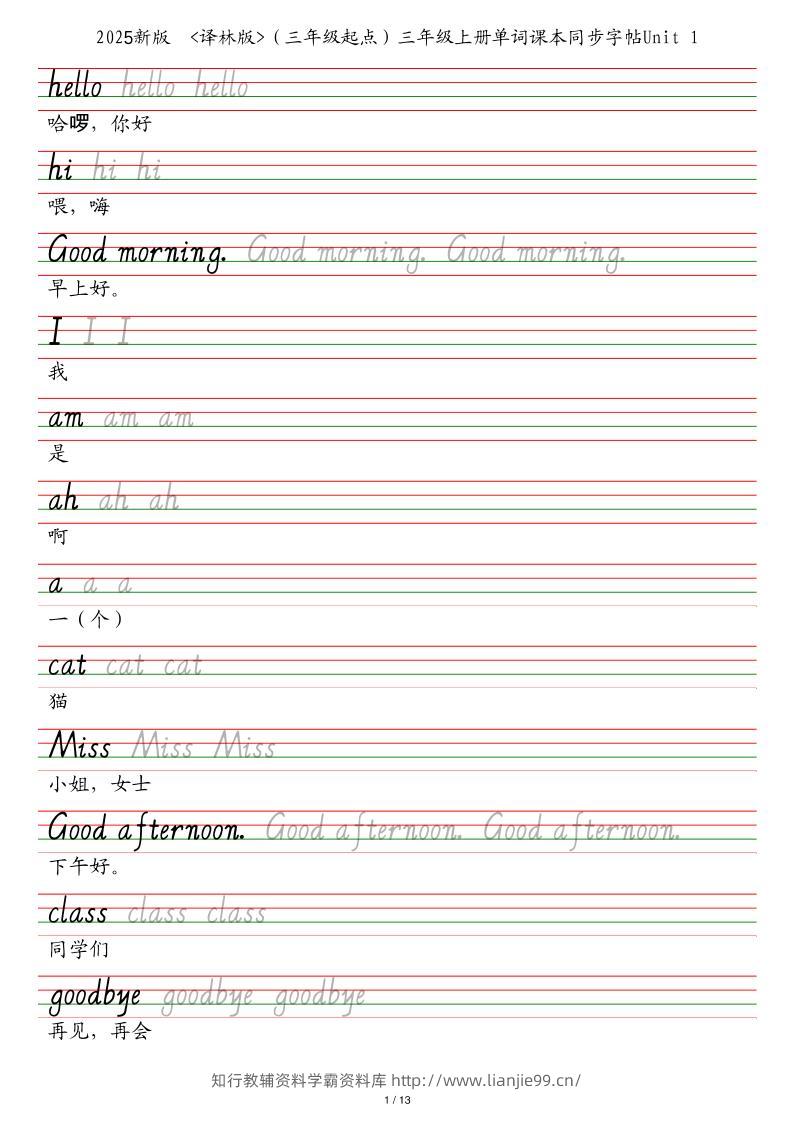 2025新版 <译林版>（三年级起点）三年级上册单词课本同步字帖Unit 1
hello hello hello
哈啰，你好
hi hi hi
喂，嗨
Good morning. Good morning. Good morning.
早上好。
I I I
我
am am am
是
ah ah ah
啊
a a a
一（个）
cat cat cat
猫
Miss Miss Miss
小姐，女士
Good afternoon. Good afternoon. Good afternoon.
下午好。
class class class
同学们
goodbye goodbye goodbye
再见，再会
知行教辅资料学霸资料库 http://www.lianjie99.cn/
1 / 13